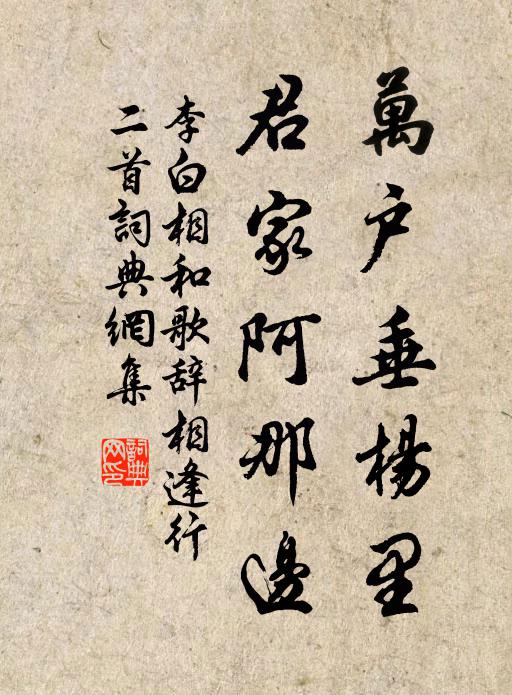 萬户垂楊里
君家阿那邊
李白相和歌辞相逢行
二首詞典網集
詞典
网印